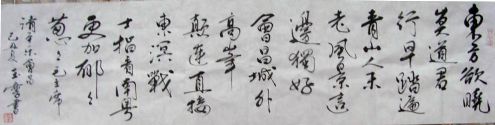 東方欲曉
莫道君
行早踏遍
青山人未
老風景這
邊獨好
會昌城外
高峯
顛連直接
東溟戰
士指看南粵
更加郁々
葱々毛主席
清平樂會昌
己丑夏玉書